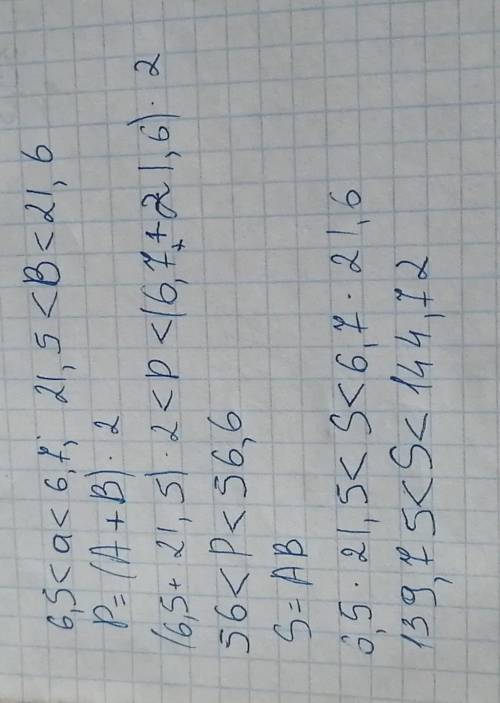 6,5<a<6,7; 21,5<B<21,6
P=(A+B)·2
(6,5+21,5)·2<P<(6,7+21,6)·2
56<P<56,6
S=AB
6,5·21,5<S<6,7·21,6
139,75<S<144,72